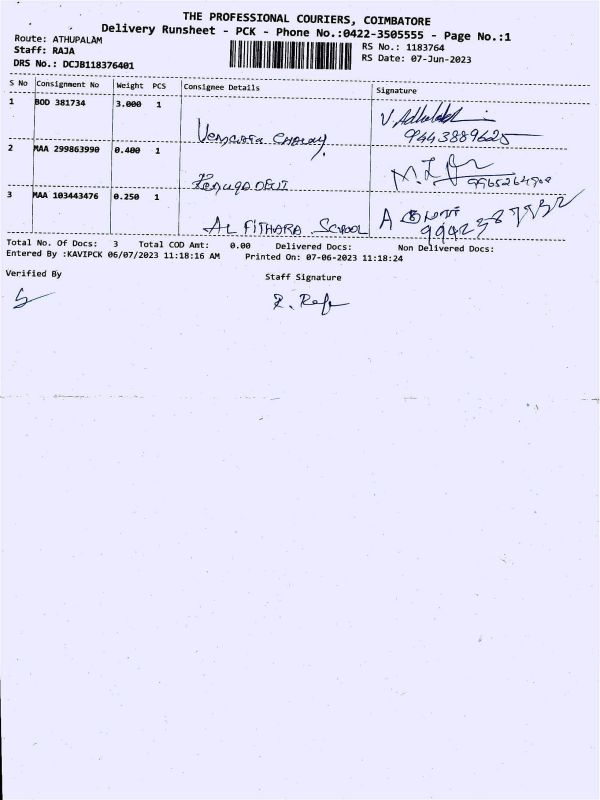 THE PROFESSIONAL COURIERS, COIMBATORE
Delivery Runsheet - PCK - Phone No.:0422-3505555 - Page No.:1
Route: ATHUPALAM
Staff: RAJA
RS No.: 1183764
DRS No.: DCJB118376401
RS Date: 07-Jun-2023
S No Consignment No Weight PCS Consignee Details Signature
1 BOD 381734 3.000 1
9443889625
2 MAA 299863990 0.400 1
3 MAA 103443476 0.250 1
AL FITHARA SCHOOL
Total No. Of Docs: 3 Total COD Amt: 0.00 Delivered Docs: Non Delivered Docs:
Entered By :KAVIPCK 06/07/2023 11:18:16 AM Printed On: 07-06-2023 11:18:24
Verified By Staff Signature